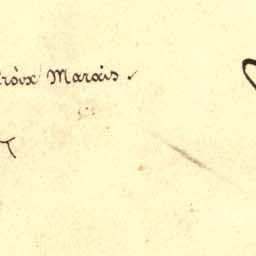 Croix Marais.